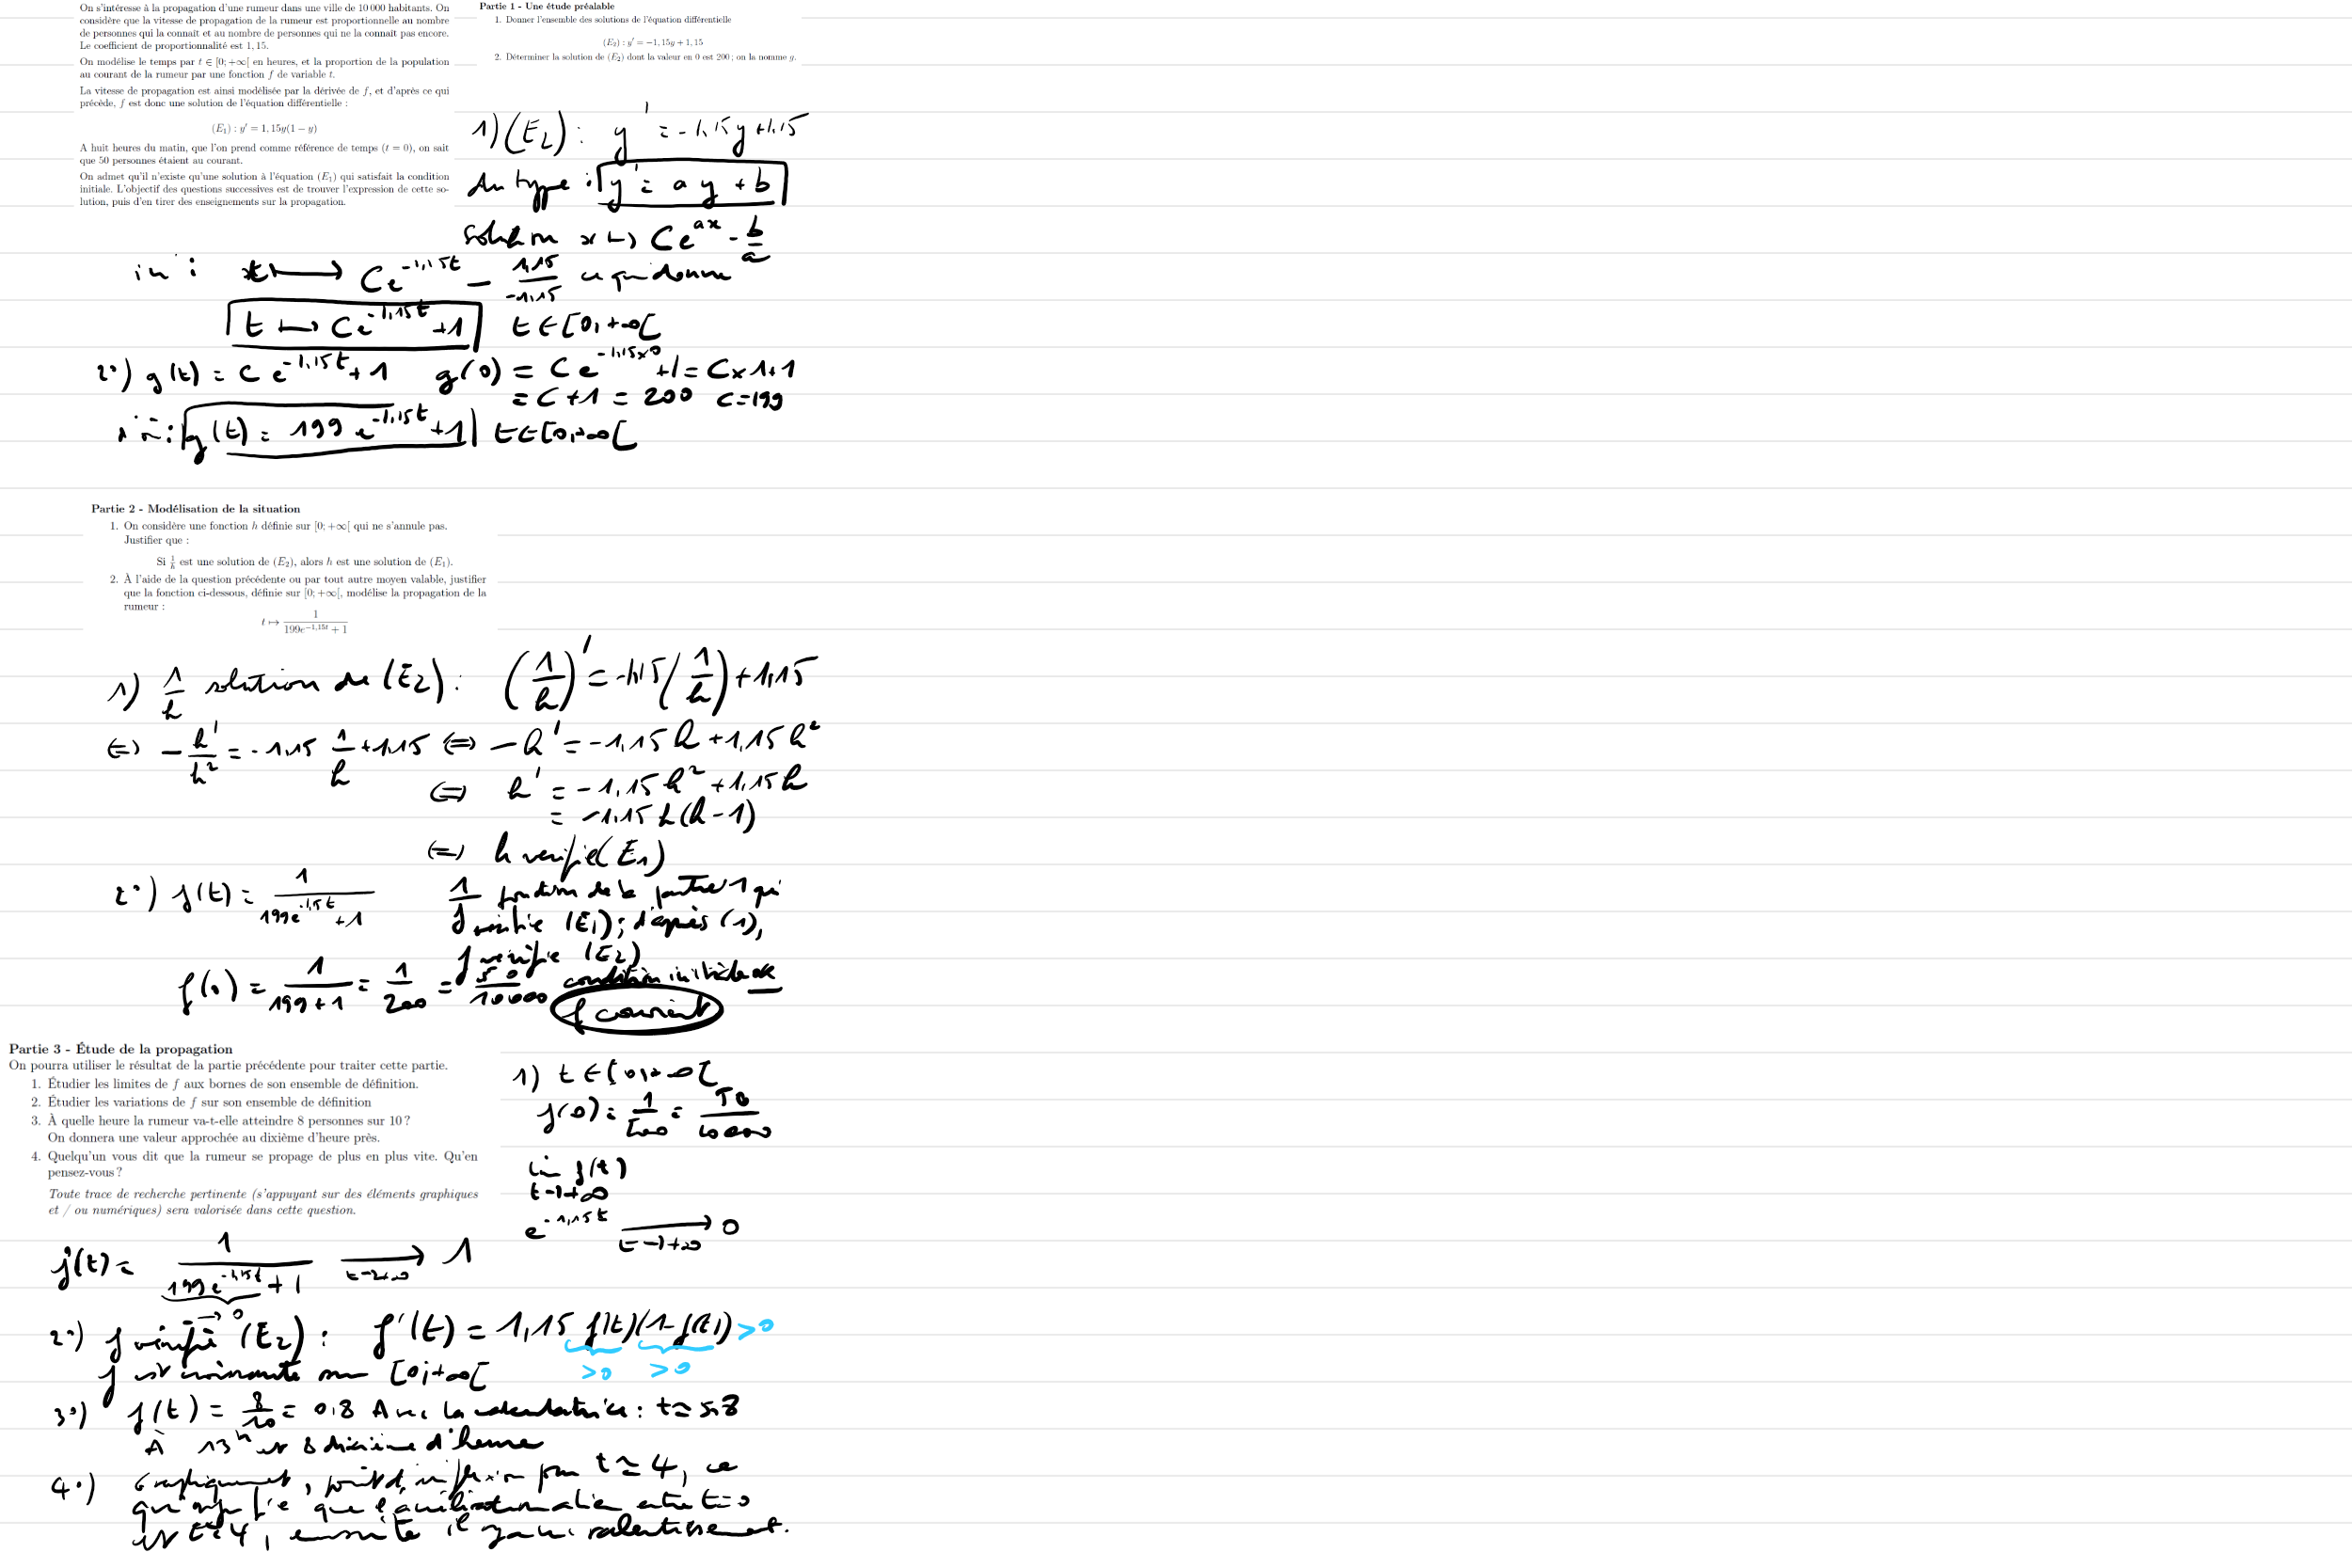 On s'intéresse à la propagation d'une rumeur dans une ville de 10 000 habitants. On
considère que la vitesse de propagation de la rumeur est proportionnelle au nombre
de personnes qui la connaît et au nombre de personnes qui ne la connaît pas encore.
Le coefficient de proportionnalité est 1, 15.
On modélise le temps par t ∈ [0; +∞[ en heures, et la proportion de la population
au courant de la rumeur par une fonction f de variable t.
La vitesse de propagation est ainsi modélisée par la dérivée de f, et d'après ce qui
précède, f est donc une solution de l'équation différentielle :
(E₁) : y' = 1, 15y(1 − y)
A huit heures du matin, que l'on prend comme référence de temps (t = 0), on sait
que 50 personnes étaient au courant.
On admet qu'il n'existe qu'une solution à l'équation (E₁) qui satisfait la condition
initiale. L'objectif des questions successives est de trouver l'expression de cette so-
lution, puis d'en tirer des enseignements sur la propagation.
Partie 1 - Une étude préalable
1. Donner l'ensemble des solutions de l'équation différentielle
(E₂) : y' = −1, 15y + 1, 15
2. Déterminer la solution de (E₂) dont la valeur en 0 est 200 ; on la nomme g.
1) (E₂) : y' = -1,15y +1,15
du type : y' = ay + b
solution x ↦ Ce^{ax} - b/a
ici : t ↦ Ce^{-1,15t} - 1,15/-1,15 ce qui donne
t ↦ Ce^{-1,15t} +1 t ∈ [0,+∞[
2°) g(t) = Ce^{-1,15t} + 1 g(0) = Ce^{-1,15×0} +1 = C×1+1
= C+1 = 200 C=199
ici : g(t) = 199e^{-1,15t} +1 t ∈ [0,+∞[
Partie 2 - Modélisation de la situation
1. On considère une fonction h définie sur [0; +∞[ qui ne s'annule pas.
Justifier que :
Si 1/h est une solution de (E₂), alors h est une solution de (E₁).
2. À l'aide de la question précédente ou par tout autre moyen valable, justifier
que la fonction ci-dessous, définie sur [0; +∞[, modélise la propagation de la
rumeur :
t ↦ 1/(199e^{−1,15t} + 1)
1) 1/h solution de (E₂) : (1/h)' = -1,15(1/h) + 1,15
⇔ -h'/h² = -1,15 1/h + 1,15 ⇔ -h' = -1,15h + 1,15h²
⇔ h' = -1,15h² + 1,15h
= -1,15h(h-1)
⇔ h verifie (E₁)
2°) f(t) = 1/(199e^{-1,15t} + 1) 1/f fonction de la partie 1 qui
vérifie (E₁) ; d'après (1),
f verifie (E₂)
f(0) = 1/(199+1) = 1/200 = 50/10000 condition initiale ok
f convient
Partie 3 - Étude de la propagation
On pourra utiliser le résultat de la partie précédente pour traiter cette partie.
1. Étudier les limites de f aux bornes de son ensemble de définition.
2. Étudier les variations de f sur son ensemble de définition
3. À quelle heure la rumeur va-t-elle atteindre 8 personnes sur 10 ?
On donnera une valeur approchée au dixième d'heure près.
4. Quelqu'un vous dit que la rumeur se propage de plus en plus vite. Qu'en
pensez-vous ?
Toute trace de recherche pertinente (s'appuyant sur des éléments graphiques
et / ou numériques) sera valorisée dans cette question.
1) t ∈ [0,+∞[
f(0) = 1/200 = 50/10000
lim f(t)
t→+∞
e^{-1,15t} → 0
t→+∞
f(t) = 1/(199e^{-1,15t} + 1) → 1
→ 0 t→+∞
2°) f vérifie (E₂) : f'(t) = 1,15 f(t)(1-f(t)) >0
>0 >0
f est croissante sur [0;+∞[
3°) f(t) = 8/10 = 0,8 Avec la calculatrice : t≃5,8
À 13h et 8 dixième d'heure
4°) Graphiquement, point d'inflexion pour t≃4, ce
qui signifie que l'accélération a lieu entre t=0
et t≃4, ensuite il y a un ralentissement.